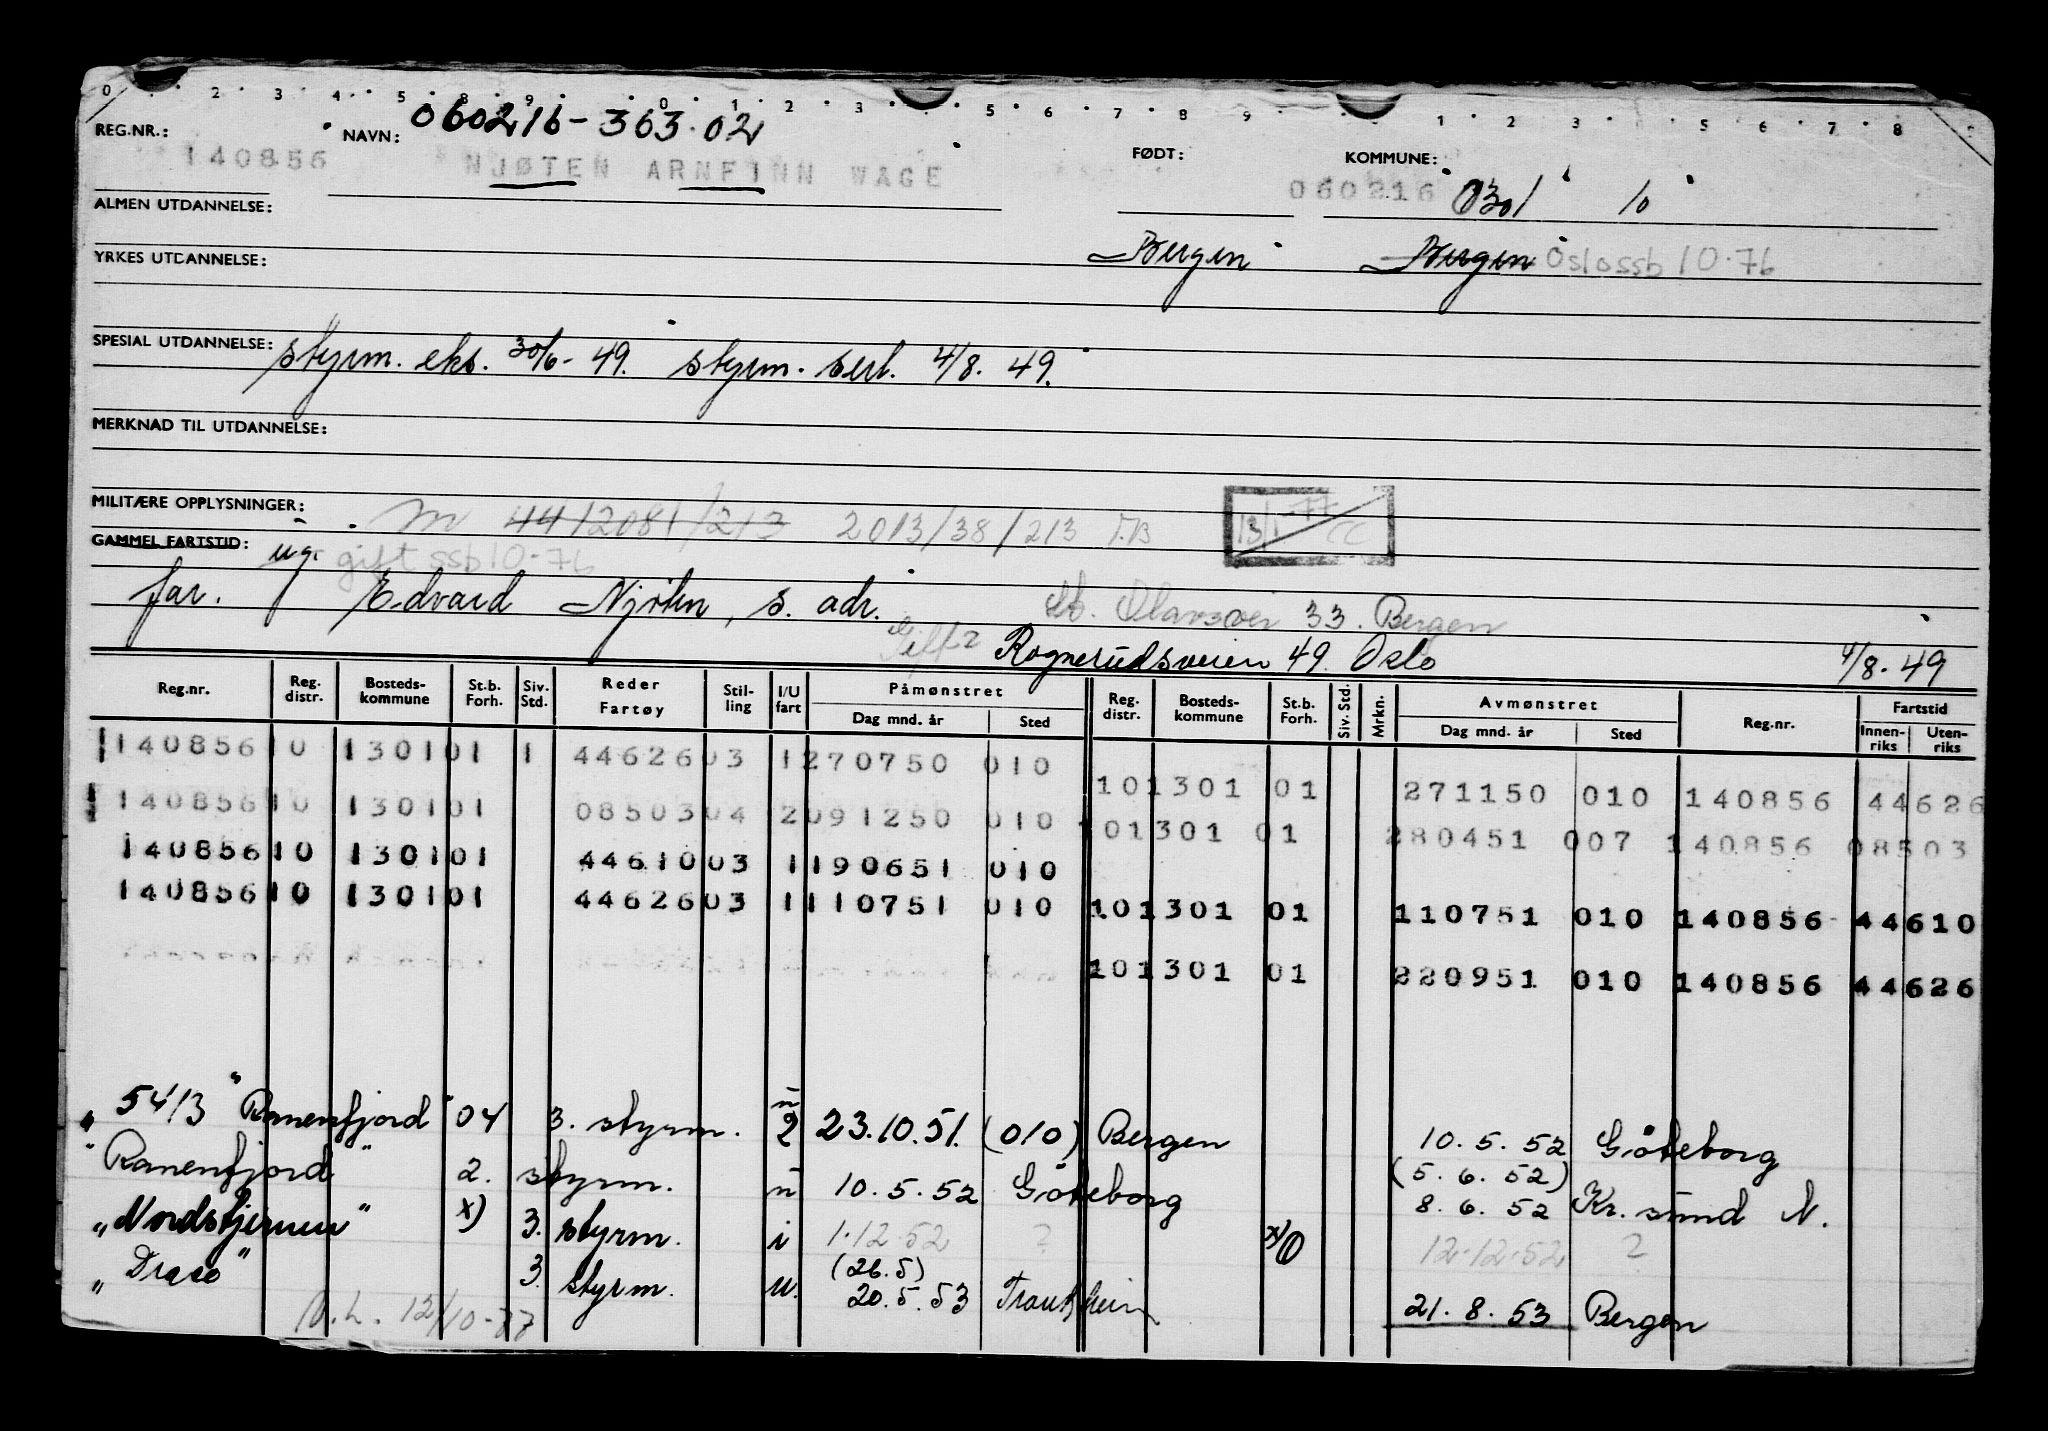 REG.NR.: 140856 NAVN: 060216-363.02
NJØTEN ARNFINN WAGE FØDT: 060216 KOMMUNE: 0301 10
ALMEN UTDANNELSE:
YRKES UTDANNELSE: Bergen Bergen Oslo ssb 10-76
SPESIAL UTDANNELSE: styrm. eks. 30/6-49. styrm. sert. 4/8. 49.
MERKNAD TIL UTDANNELSE:
MILITÆRE OPPLYSNINGER: m 44/2081/213 2013/38/213 13/1-77
GAMMEL FARTSTID: ug. gift ssb 10-76
far. Edvard Njøten, s. adr. St. Olavsvei 33. Bergen
Rognerudsveien 49. Oslo 4/8-49
Reg.nr. Reg. distr. Bosteds-kommune St.b. Forh. Siv. Std. Reder Fartøy Stil-ling I/U fart Påmønstret Dag mnd. år Sted Reg. distr. Bosteds-kommune St.b. Forh. Siv. Std. Mrkn. Avmønstret Dag mnd. år Sted Reg.nr. Fartstid Innen-riks Uten-riks
140856 10 1301 01 1 44626 03 1 270750 010
101301 01 271150 010 140856 44626
140856 10 1301 01 08503 04 2 091250 010
101301 01 280451 007 140856 08503
140856 10 1301 01 44610 03 1 190651 010
101301 01 110751 010 140856 44610
140856 10 1301 01 44626 03 1 110751 010
101301 01 220951 010 140856 44626
5413 "Ranenfjord" 04 3. styrm. u 2 23.10.51. (010) Bergen 10.5.52 Göteborg
"Ranenfjord" 2. styrm. u 10.5.52 Göteborg (5.6.52) 8.6.52 Kr. sund N.
"Nordstjernen" x) 3. styrm. i 1.12.52 ? x) 0 12.12.52 ?
"Draco" 3. styrm. u. (26.5) 20.5.53 Trondheim 21.8.53 Bergen
12/10-77